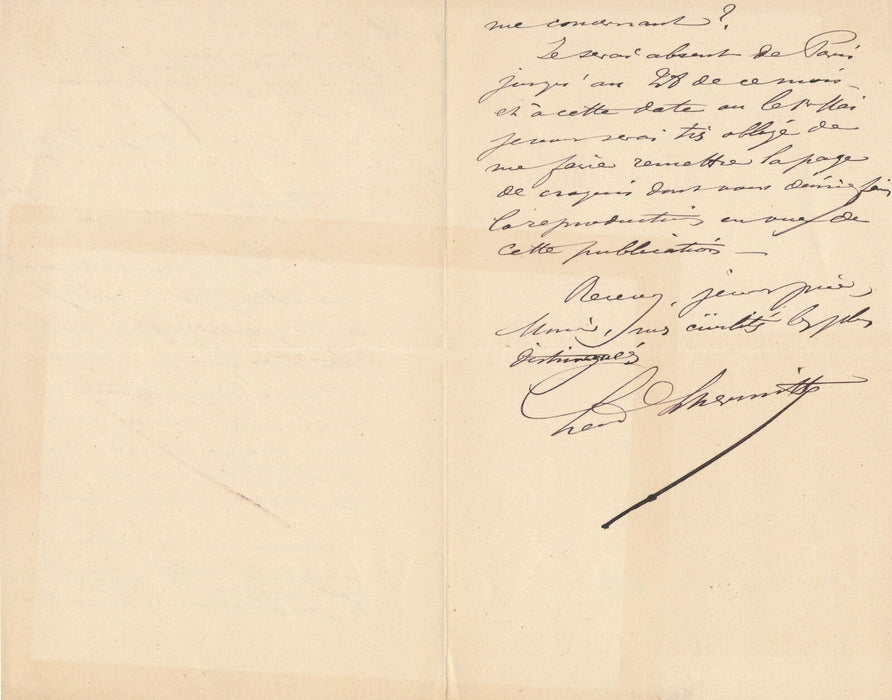 me concernant ?
Je serai absent de Paris
jusqu'au 28 de ce mois
et à cette date ou le 1er Mai
je vous serai très obligé de
me faire remettre la page
de croquis dont vous désirez faire
la reproduction en vue de
cette publication —
Recevez, je vous prie,
Monsieur, mes civilités les plus
distinguées
Léon Lhermitte